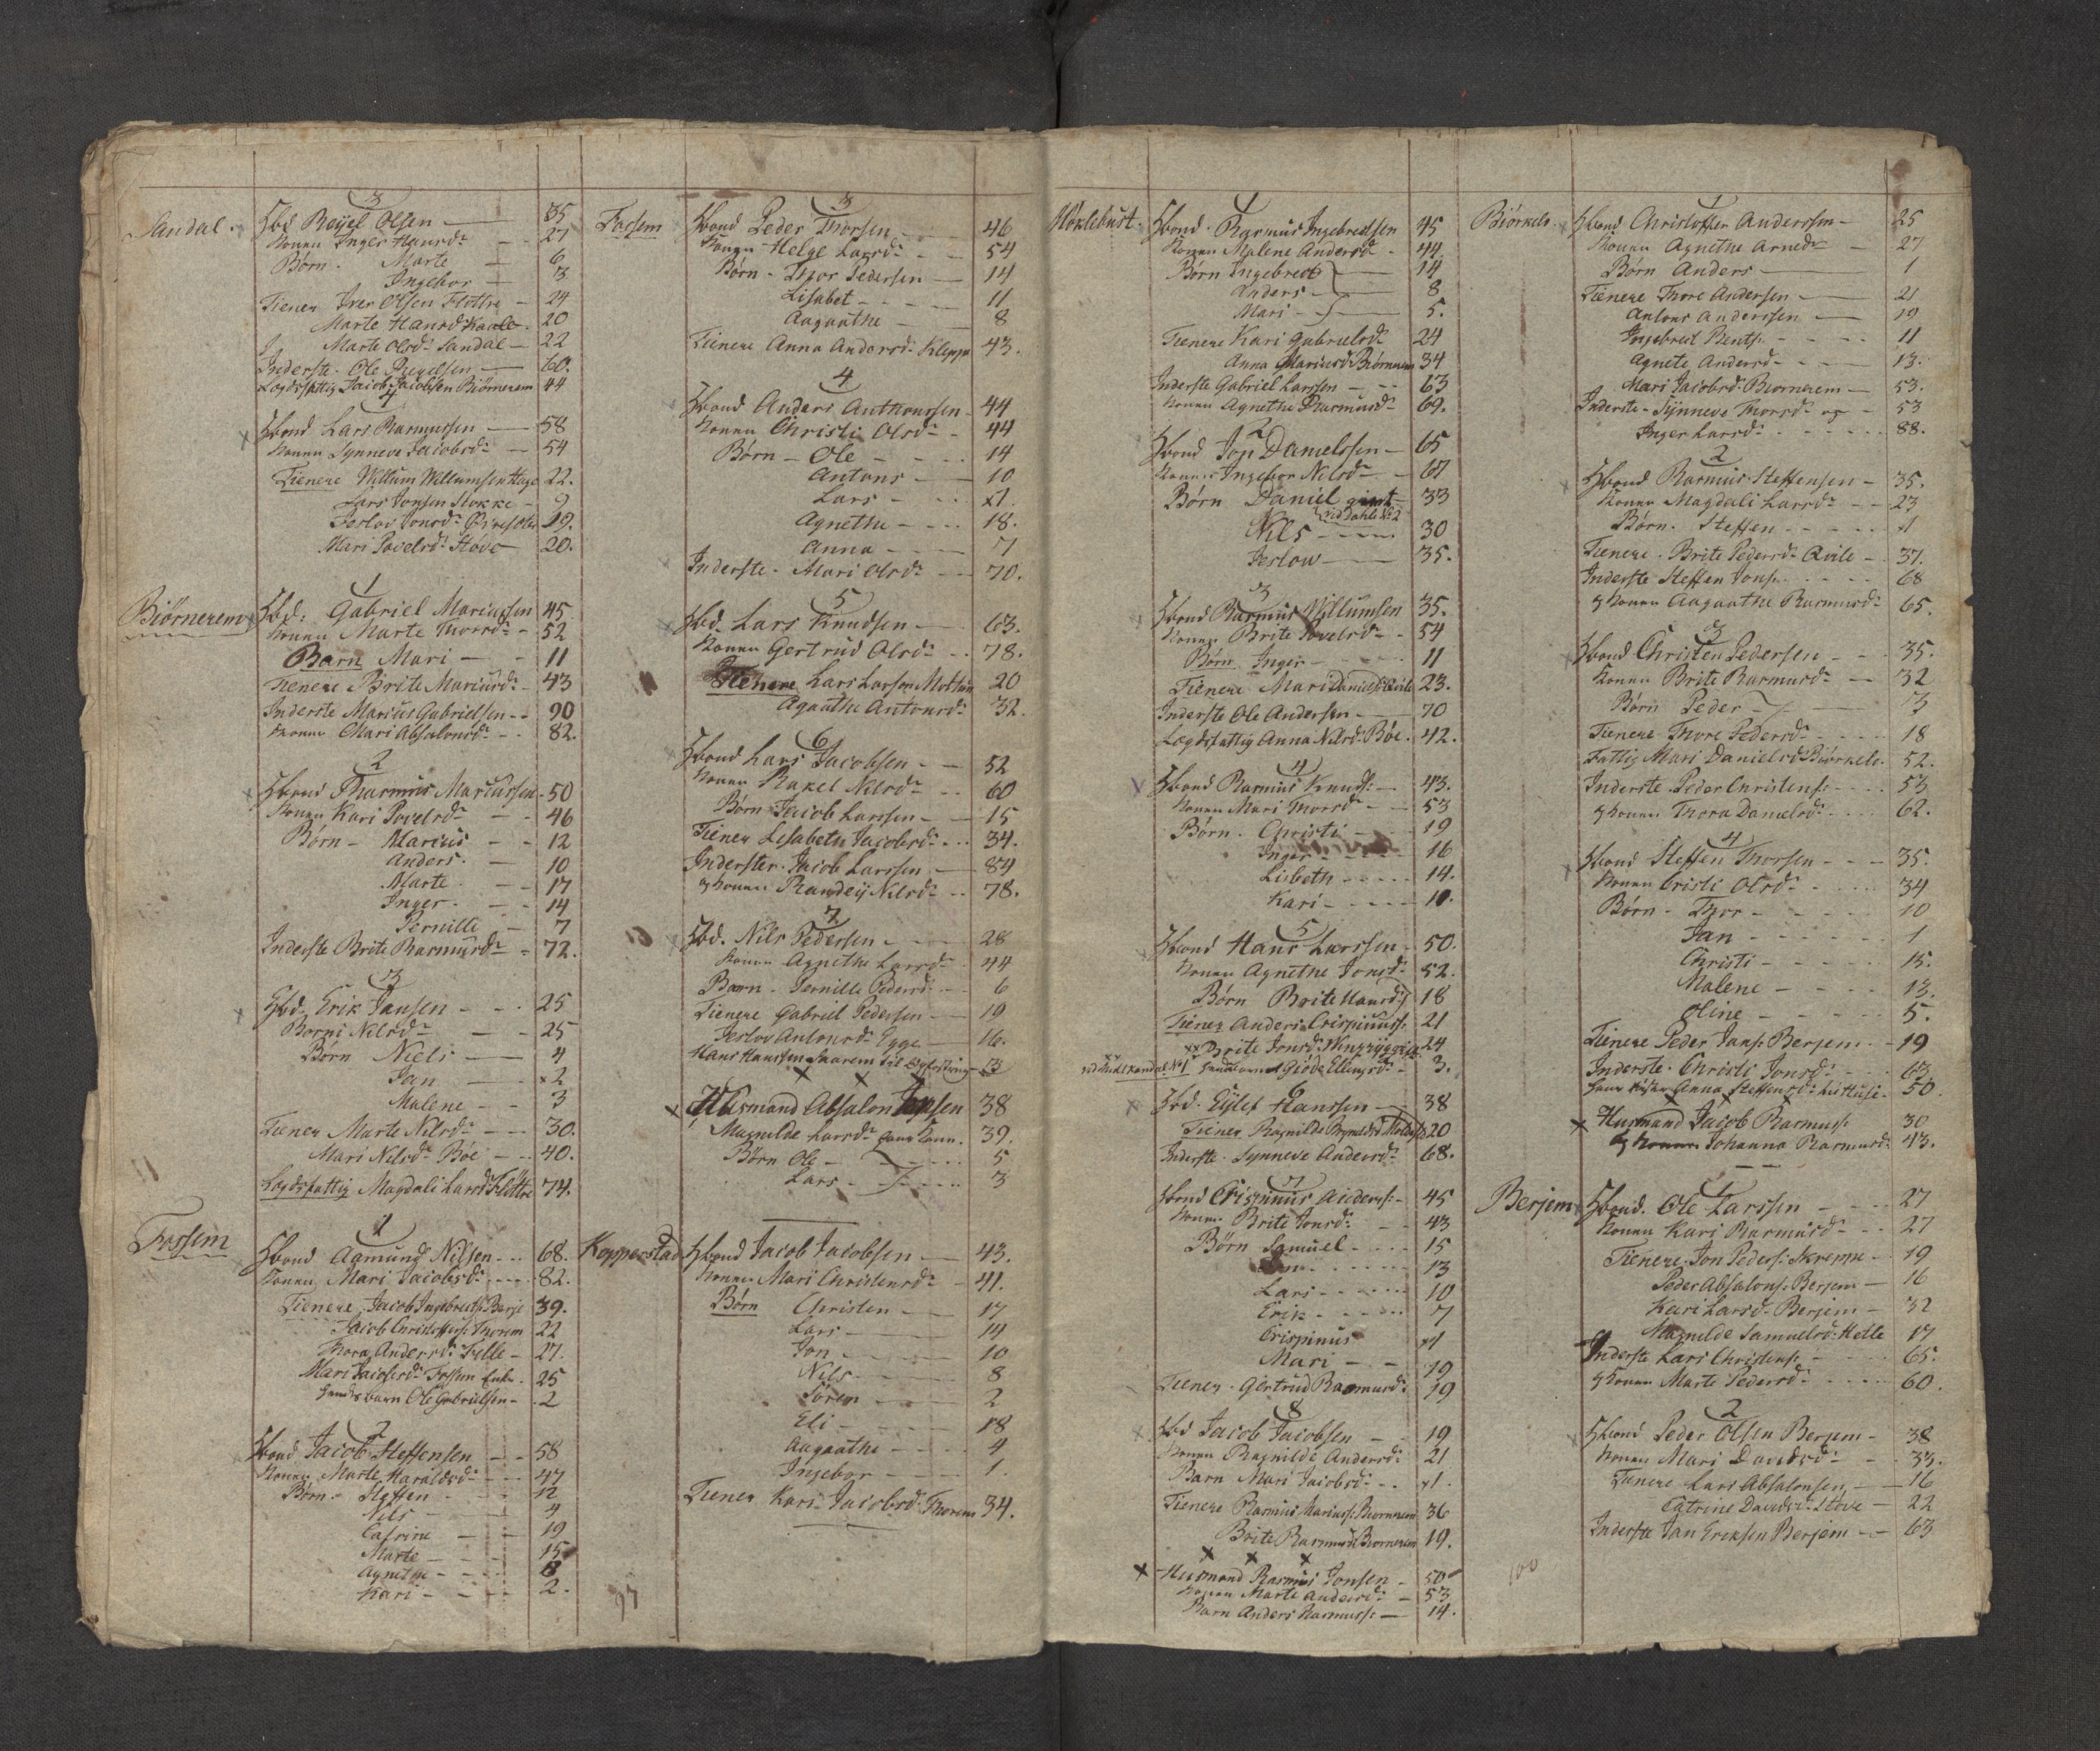 Sandal.
3
Hbd Reijel Olsen — 35
Konen Inger Hansd: — 27
Børn. Marte — 6
Ingebor — 3
Tiener Iver Olsen Flottre — 24
Marte Hansd: Kaale. 20
Marte Olsd: Sandal — 22
Inderste. Ole — 60.
Lægdsfattig Jacob Jacobsen Biørnerem 44
4
Hbond Lars Rasmussen — 58
Konen Synneve Jacobsd: — 54
Tienere Willum Willumsen Hage 22.
Lars Jonsen Slokke — 9
Jerlov Jonsd: 19.
Mari Povelsd: Støve — 20.
Biørnerem
1
Hbd: Gabriel Mariussen 45
Konen Marte Thorsd: — 52
Barn Mari — 11
Tienere Brite Mariusd: — 43
Inderste Marius Gabrielsen — 90
Konen Mari Absalonsd: — 82.
2
Hbond Rasmus Mariussen. 50
Konen Kari Povelsd: — 46
Børn — Marius — 12
Anders. — 10
Marte. — 17
Inger. — 14
Pernille — 7
Inderste Brite Rasmusd: — 72.
3
Hbd. Erik Jansen — 25
Borni Nilsd: — 25
Børn Niels — 4
Jan — x2
Malene — 3
Tiener Marte Nilsd: — 30.
Mari Nilsd: Bøe — 40.
Lægdsfattig Magdali Larsd: Fløttre 74.
Fossem
1
Hbond Aamund Nilsen — 68.
Konen Mari Jacobsd: — 82.
Tienere Jacob Ingebretsen Berje 39.
Jacob Christoffers: Thorem 22
Thora Andersd: — 27.
Mari Jacobsd: Fossem Enke. 25
barn Ole Gabrielsen — 2
2
Hbond Jacob Steffensen — 58
Konen Marte Haraldsd: — 47
Børn — Steffen — 12
Nils — 4
Catrine — 19
Marte — 15
Agnethe — 8
Kari — 2.
Fossem
3
Hbond Peder Thorsen — 46
Konen — Helge Larsd: — 54
Børn — Thor Pedersen — 14
Lisabet — 11
Aagaathe — 8
Tienere Anna Andersd: Kleppe 43.
4
Hbond Anders Anthonssen — 44
Konen Christi Olsd: — 44
Børn — Ole — 14
Antons — 10
Lars — x1.
Agnethe — 18.
Anna — 7
Inderste — Mari Olsd: — 70.
5
Hbd. Lars Knudsen — 63.
Konen Gertrud Olsd: — 78.
Tienere Lars Larsen 20
Agaathe Antonsd: 32.
6
Hbond Lars Jacobsen — 52
Konen Rakel Nilsd: — 60
Børn Jacob Larssen — 15
Tiener Lisabeth Jacobsd: — 34.
Inderster. Jacob Larssen — 84
og Konen Randeij Nilsd: — 78.
7
Hbd. Nils Pedersen — 28
Konen Agnethe Larsd: 44
Barn — Pernille Pedersd: — 6
Tienere Gabriel Pedersen — 19
Jerlov Antonsd: Egge — 16.
Hans Hansen til Opfostring 3
x x x
x Husmand Absalon Jonsen 38
Magnilde Larsd: hans Kone. 39.
Børn Ole — 5
Lars — 3
Kopperstad
Hbond Jacob Jacobsen — 43.
Konen Mari Christensd: — 41.
Børn Christen — 17
Lars — 14
Jon — 10
Nils — 8
Søren — 2
Eli — 18
Aagaathe — 4
Ingebor — 1.
Tiener Kari Jacobsd: Thorem 34.
97
Møklebust.
1
Hbond. Rasmus Ingebredtsen 45
Konen Malene Andersd: 44.
Børn Ingebredt — 14
Anders — 8
Mari — 5.
Tienere Kari Gabrielsd: 24
Anna Mariusd: Biørnerem 34
Inderste Gabriel Larssen — 63
Konen Agnethe Rasmusd: 69.
2
Hbond Jon Danielssen — 65
Konen Ingebor Nilsd: — 67
Børn Daniel givt 33
vid Dahle No 2
Nils — 30
Jerlow — 35.
3
Hbond Rasmus Willumsen 35.
Konen Brite Povelsd: — 54
Børn Inger — 11
Tienere Mari Danielsd: Qvile 23.
Inderste Ole Andersen — 70
Lægdsfattig Anna Nilsd: Bøe. 42.
4
Hbond Rasmus Knuds: — 43.
Konen Mari Thorsd: — 53
Børn. Christi — 19
Inger — 16
Lisbeth — 14.
Kari — 10.
5
Hbond Hans Larssen — 50.
Konen Agnethe Jonsd: 52.
Børn Brite Hansd: 18
Tiener Anders Crispinus: 21
xx Brite Jonsd: 24
Giøde Ellingsd: — 3.
6
Hbd. Eilef Hanssen — 38
Tiener Ragnilde 20
Inderste. Synneve Andersd: 68.
7
Hbond Crispinus Anders: — 45
Konen Brite Jonsd: — 43
Børn Samuel — 15
— 13
Lars — 10
Erik — 7
Crispinus x1
Mari — 19
Tiener. Gertrud Rasmusd: 19
8
Hbd Jacob Jacobsen — 19
Konen Ragnilde Andersd: 21
Barn Mari Jacobsd: x1.
Tienere Rasmus Marius: Biørnerem 36
Brite Rasmusd: Biørnerem 19.
x x x
x Husmand Rasmus Jonsen — 50
Konen Marte Andersd: — 53
Barn Anders Rasmus: — 14.
Biørkelo.
1
Hbond Christoffer Anderssen — 25
Konen Agnethe Arnesd: — 27
Børn Anders — 1
Tienere Thore Andersen — 21
Antons Anderssen — 19
Ingebret Bents: — 11
Agnete Andersd: — 13.
Mari Jacobsd: Biørnerem — 53.
Inderste — Synneve Thorsd: og — 53
Inger Larsd: — 88.
2
Hbond Rasmus Steffensen — 35.
Konen Magdali Larsd: — 23
Børn. Steffen — x1
Tienere. Brite Pedersd: Qvile — 37.
Inderste Steffen Jons: — 68
og Konen Aagaathe Rasmusd: 65.
3
Hbond Christen Pedersen — 35.
Konen Brite Rasmusd: — 32
Børn Peder — 3
Tienere Thore Pedersd: — 18
Fattig Mari Danielsd: Biørkelo. 52.
Inderste. Peder Christens: — 53
og Konen Thora Danielsd: — 62.
4
Hbond Steffen Thorsen — 35.
Konen Cristi Olsd: — 34
Børn — Thor — 10
Jan — 1
Christi — 15.
Malene — 13.
Oline — 5.
Tienere Peder Jans: Berjem — 19
Inderste. Christi Jonsd: — 63.
Anna Steffensd: 50.
x Husmand Jacob Rasmus: 30
og Konen Johanna Rasmusd: 43.
Berjem
1
Hbond. Ole Larssen — 27
Konen Kari Rasmusd: — 27
Tienere. Jon Peders: Skreppe — 19
Peder Absalons: Berjem — 16
Kari Larsd: Berjem — 32
Magnilde Samuelsd: Helle 17
Inderste Lars Christens: — 65.
og Konen Marte Pedersd: — 60.
2
Hbond Peder Olsen Berjem — 38
Konen Mari Davidsd: — 33.
Tienere Lars Absalonsen — 16
Catrine Davidsd: Støve — 22
Inderste Jan Eriksen Berjem — 63
100